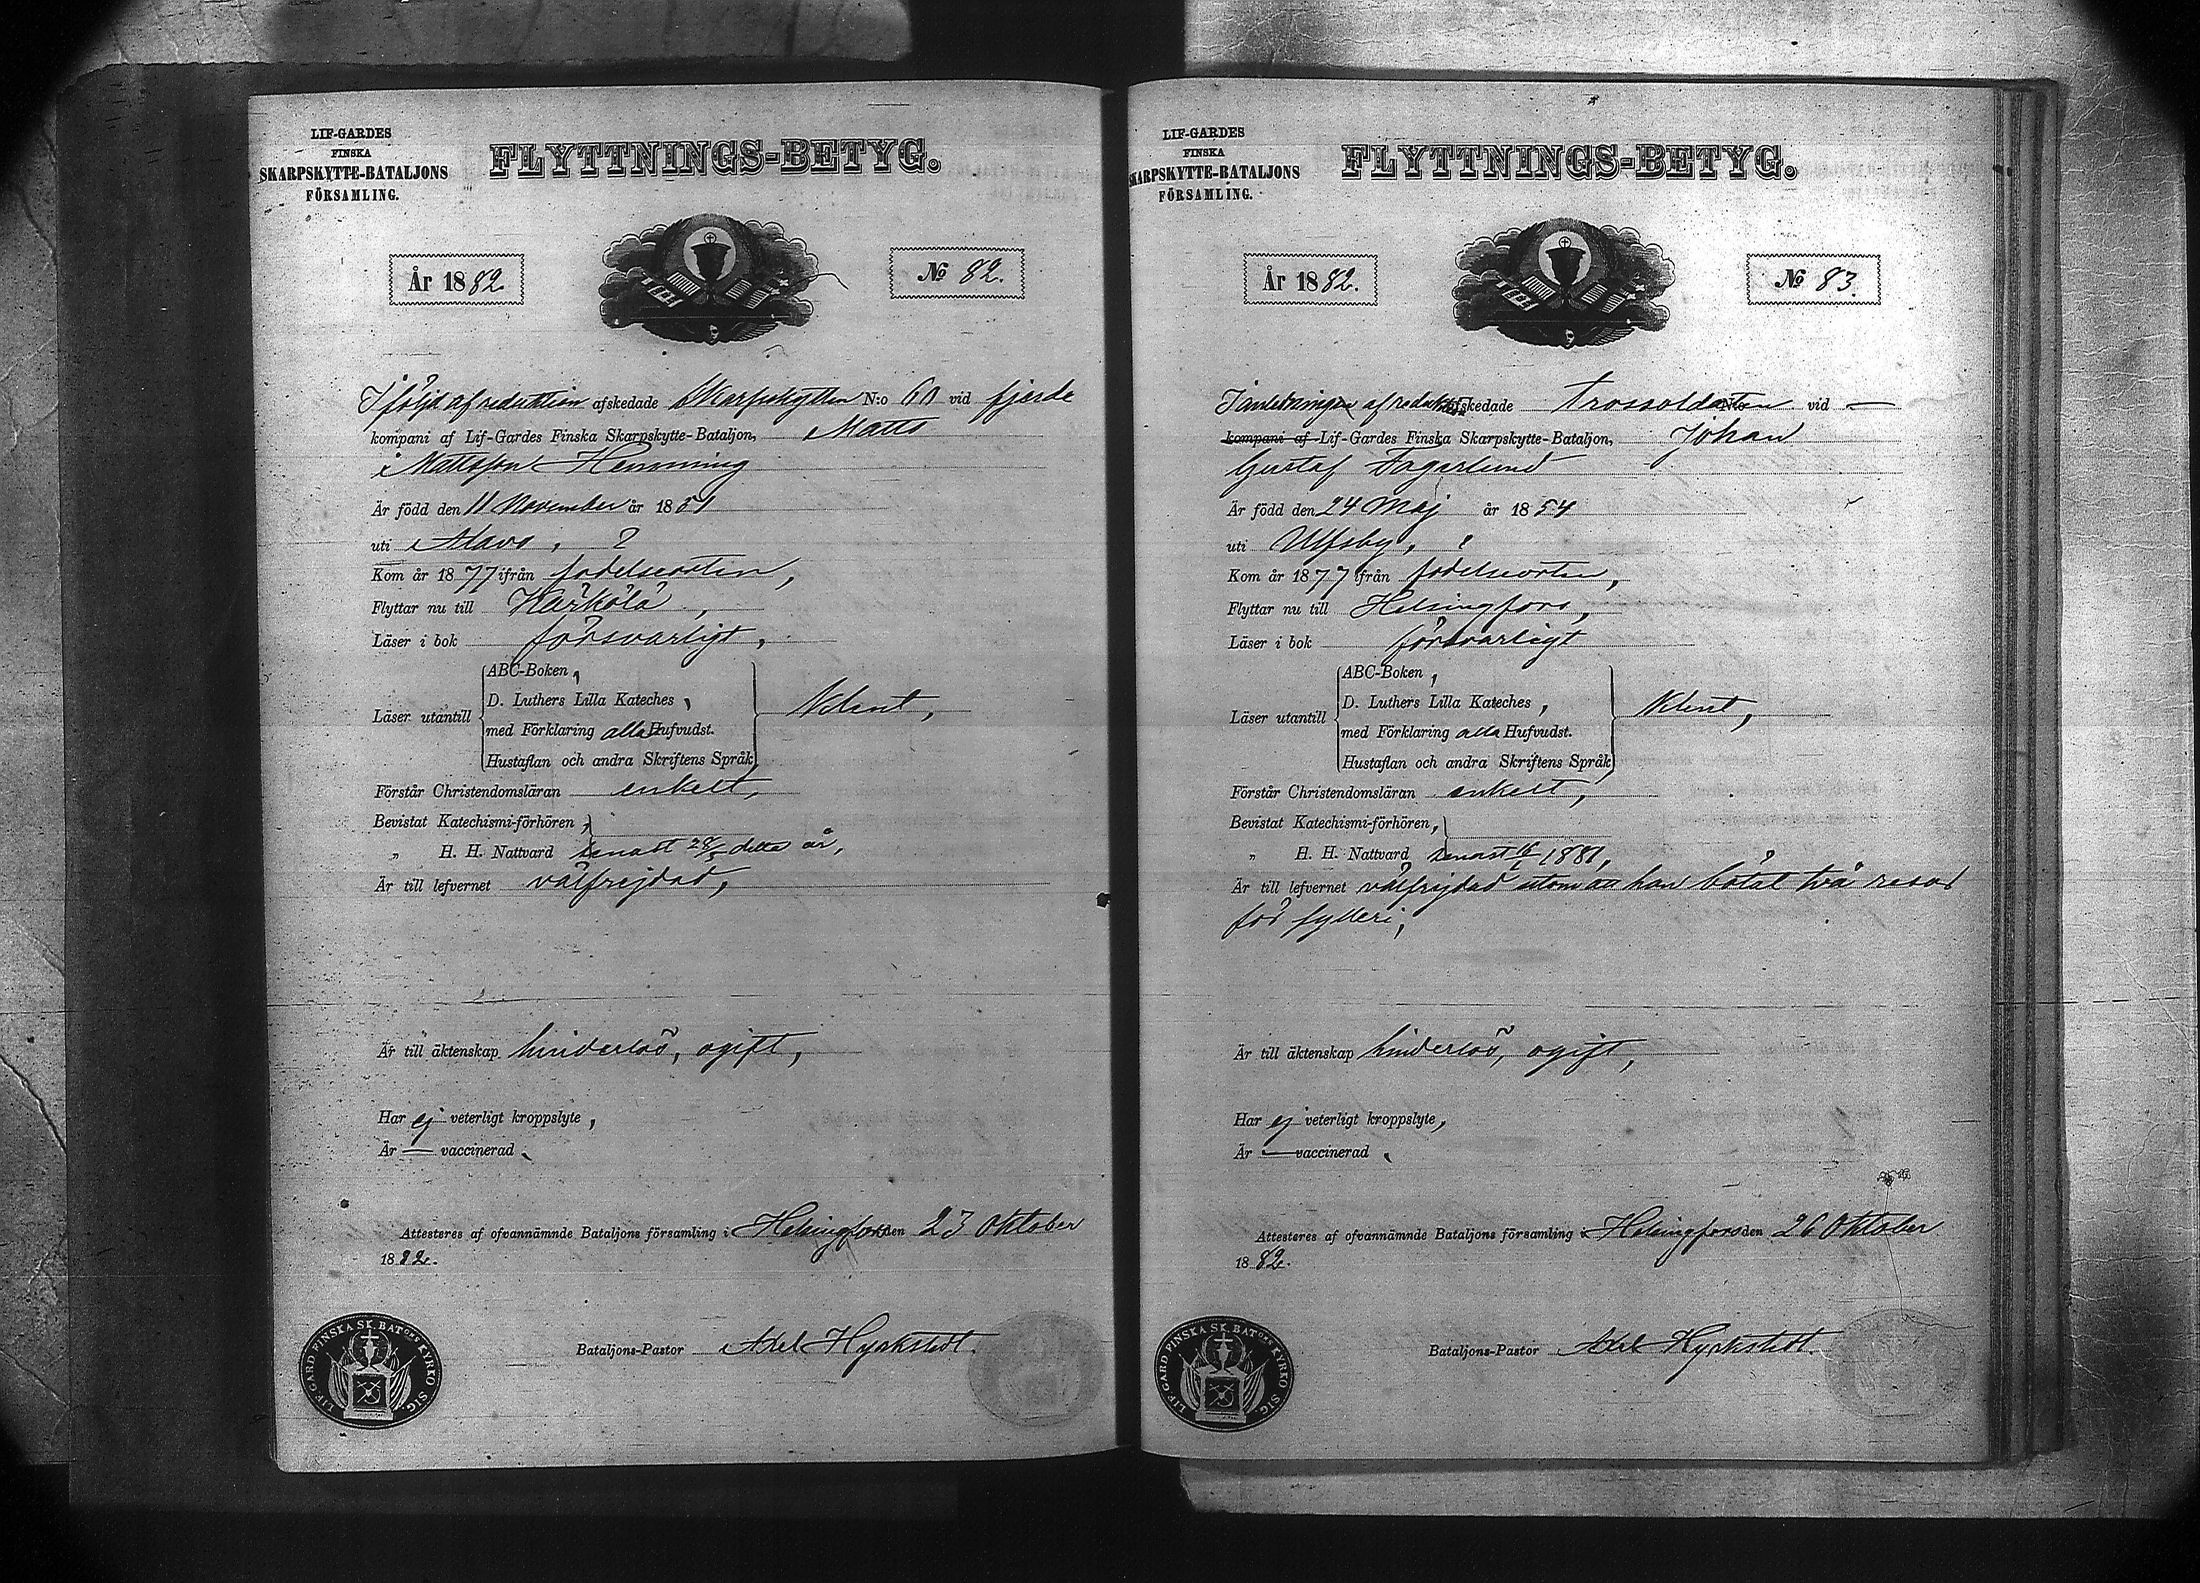 LIF-GARDES
FINSKA
SKARPSKYTTE-BATALJONS
FÖRSAMLING.
FLYTTNINGS-BETYG.
År 1882.
No 82.
I följd af reduktion afskedade Skarpskytten N:o 60 vid fjerde
kompani af Lif-Gardes Finska Skarpskytte-Bataljon, Matts
Mattsson Hemming
Är född den 11 November år 1851
uti Alavo, ?
Kom år 1877 ifrån födelseorten,
Flyttar nu till Kärkölä,
Läser i bok försvarligt,
ABC-Boken,
D. Luthers Lilla Kateches,
Läser utantill
med Förklaring alla Hufvudst.
Hustaflan och andra Skriftens Språk
klent,
Förstår Christendomsläran enkelt,
Bevistat Katechismi-förhören,
„ H. H. Nattvard senast 28/5 detta år,
Är till lefvernet välfrejdad,
Är till äktenskap hinderlös, ogift,
Har ej veterligt kroppslyte,
Är — vaccinerad.
Attesteres af ofvannämnde Bataljons församling i Helsingfors den 23 Oktober
1882.
Bataljons-Pastor Axel Hyrkstedt.
LIF GARD FINSKA SK. BATons KYRKO SIG.
LIF-GARDES
FINSKA
SKARPSKYTTE-BATALJONS
FÖRSAMLING.
FLYTTNINGS-BETYG.
År 1882.
No 83.
I anledningen af reduktion afskedade Trossoldaten N:o vid —
kompani af Lif-Gardes Finska Skarpskytte-Bataljon, Johan
Gustaf Fagerlund
Är född den 24 Maj år 1854
uti Ulfsby, ?
Kom år 1877 ifrån födelseorten,
Flyttar nu till Helsingfors,
Läser i bok försvarligt
ABC-Boken,
D. Luthers Lilla Kateches,
Läser utantill
med Förklaring alla Hufvudst.
Hustaflan och andra Skriftens Språk
klent,
Förstår Christendomsläran enkelt,
Bevistat Katechismi-förhören,
„ H. H. Nattvard senast 1881,
Är till lefvernet välfrejdad utom att han bötat två resor
för fylleri,
Är till äktenskap hinderlös, ogift,
Har ej veterligt kroppslyte,
Är — vaccinerad.
Attesteres af ofvannämnde Bataljons församling i Helsingfors den 26 Oktober
1882.
Bataljons-Pastor Axel Hyrkstedt.
LIF GARD FINSKA SK. BATons KYRKO SIG.